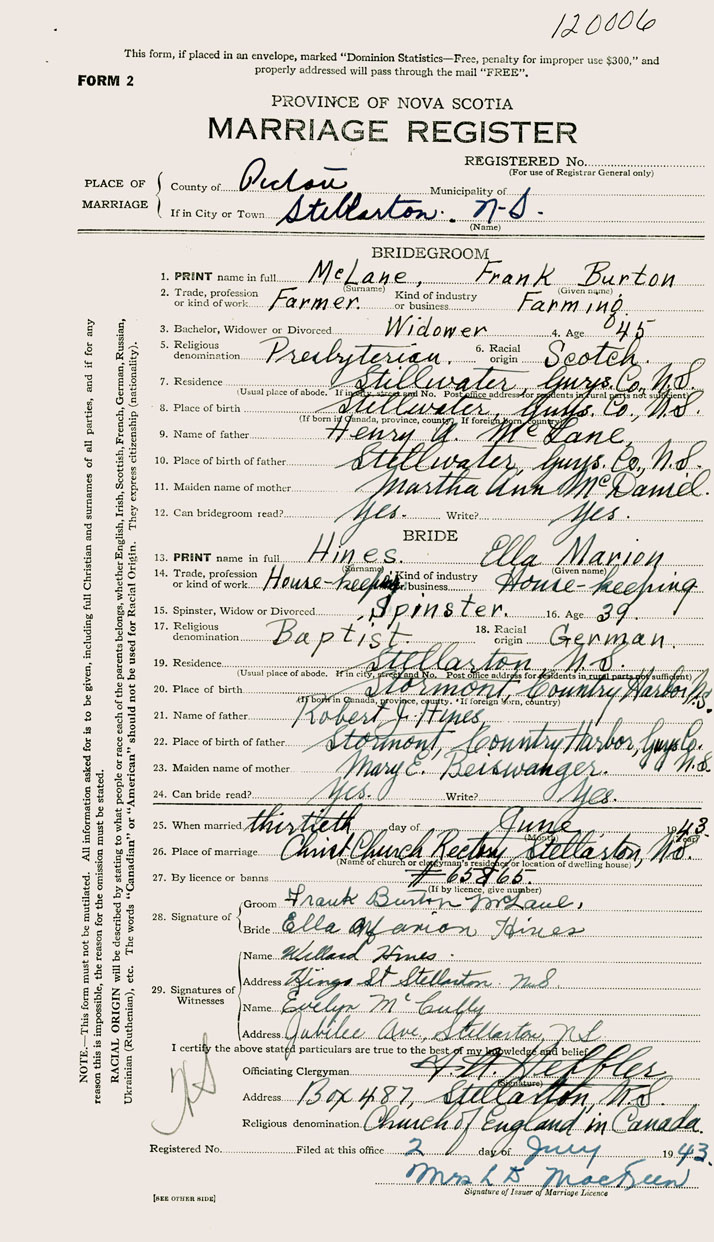 120006
This form, if placed in an envelope, marked “Dominion Statistics—Free, penalty for improper use $300,” and
properly addressed will pass through the mail “FREE”.
FORM 2
PROVINCE OF NOVA SCOTIA
MARRIAGE REGISTER
REGISTERED No.
(For use of Registrar General only)
PLACE OF MARRIAGE
County of Pictou Municipality of
If in City or Town Stellarton. N-S.
(Name)
BRIDEGROOM
1. PRINT name in full McLane, Frank Burton
(Surname) (Given name)
2. Trade, profession or kind of work Farmer. Kind of industry or business Farming
3. Bachelor, Widower or Divorced Widower 4. Age 45
5. Religious denomination Presbyterian. 6. Racial origin Scotch.
7. Residence Stillwater, Guys. Co., N.S.
(Usual place of abode. If in city, street and No. Post office address for residents in rural parts not sufficient)
8. Place of birth Stillwater, Guys. Co., N.S.
(If born in Canada, province, county. If foreign born, country)
9. Name of father Henry A. McLane,
10. Place of birth of father Stillwater, Guys. Co., N.S.
11. Maiden name of mother Martha Ann McDaniel.
12. Can bridegroom read? Yes. Write? Yes.
BRIDE
13. PRINT name in full Hines. Ella Marion
(Surname) (Given name)
14. Trade, profession or kind of work House-keeping Kind of industry or business House-keeping
15. Spinster, Widow or Divorced Spinster. 16. Age 39.
17. Religious denomination Baptist. 18. Racial origin German.
19. Residence Stellarton, N.S.
(Usual place of abode. If in city, street and No. Post office address for residents in rural parts not sufficient)
20. Place of birth Stormont, Country Harbor, N.S.
(If born in Canada, province, county. *If foreign born, country)
21. Name of father Robert J. Hines,
22. Place of birth of father Stormont, Country Harbor, Guys Co. N.S.
23. Maiden name of mother Mary E. Beiswanger.
24. Can bride read? Yes. Write? Yes.
25. When married thirtieth day of June 1943.
(Month) (Year)
26. Place of marriage Christ Church Rectory Stellarton, N.S.
(Name of church or clergyman's residence or location of dwelling house)
27. By licence or banns # 65865
(If by licence, give number)
28. Signature of
Groom Frank Burton McLane.
Bride Ella Marion Hines
29. Signatures of Witnesses
Name Willard Hines.
Address Kings St Stellarton. N.S.
Name Evelyn McCully
Address Jubilee Ave., Stellarton, N.S.
I certify the above stated particulars are true to the best of my knowledge and belief.
Officiating Clergyman
(Signature)
Address Box 487, Stellarton, N.S.
Religious denomination Church of England in Canada.
Registered No. Filed at this office 2 day of July 1943.
Mrs L D MacKeen
Signature of Issuer of Marriage Licence
[SEE OTHER SIDE]
NOTE.—This form must not be mutilated. All information asked for is to be given, including full Christian and surnames of all parties, and if for any
reason this is impossible, the reason for the omission must be stated.
RACIAL ORIGIN will be described by stating to what people or race each of the parents belongs, whether English, Irish, Scottish, French, German, Russian,
Ukrainian (Ruthenian), etc. The words “Canadian” or “American” should not be used for Racial Origin. They express citizenship (nationality).